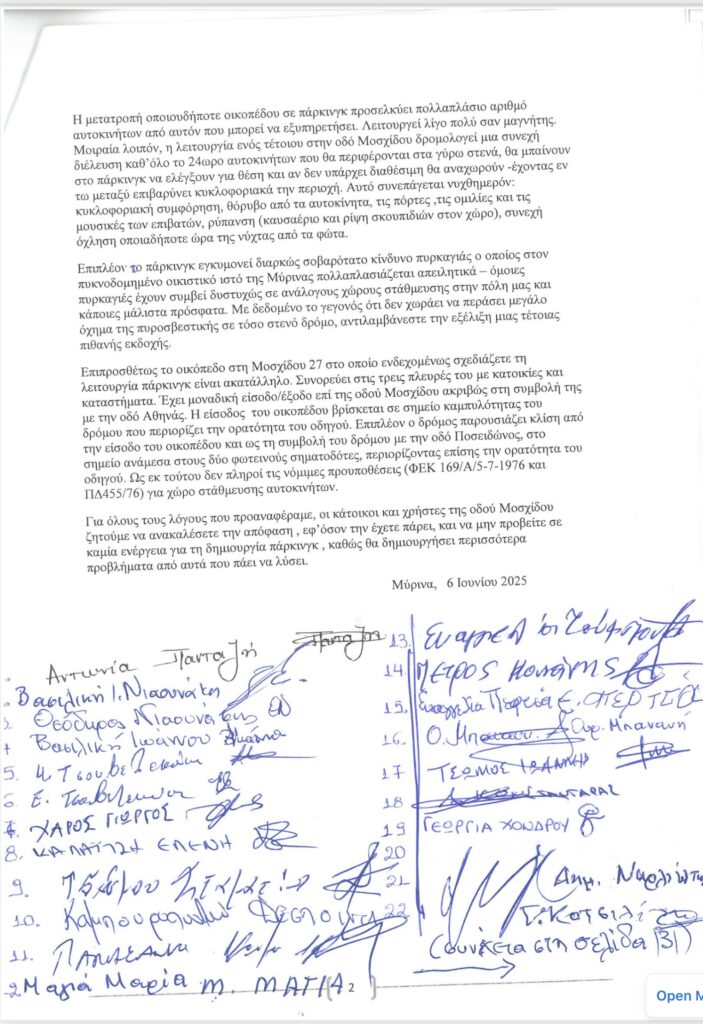 Η μετατροπή οποιουδήποτε οικοπέδου σε πάρκινγκ προσελκύει πολλαπλάσιο αριθμό
αυτοκινήτων από αυτόν που μπορεί να εξυπηρετήσει. Λειτουργεί λίγο πολύ σαν μαγνήτης.
Μοιραία λοιπόν, η λειτουργία ενός τέτοιου στην οδό Μοσχίδου δρομολογεί μια συνεχή
διέλευση καθ'όλο το 24ωρο αυτοκινήτων που θα περιφέρονται στα γύρω στενά, θα μπαίνουν
στο πάρκινγκ να ελέγξουν για θέση και αν δεν υπάρχει διαθέσιμη θα αναχωρούν -έχοντας εν
τω μεταξύ επιβαρύνει κυκλοφοριακά την περιοχή. Αυτό συνεπάγεται νυχθημερόν:
κυκλοφοριακή συμφόρηση, θόρυβο από τα αυτοκίνητα, τις πόρτες ,τις ομιλίες και τις
μουσικές των επιβατών, ρύπανση (καυσαέριο και ρίψη σκουπιδιών στον χώρο), συνεχή
όχληση οποιαδήποτε ώρα της νύχτας από τα φώτα.
Επιπλέον το πάρκινγκ εγκυμονεί διαρκώς σοβαρότατο κίνδυνο πυρκαγιάς ο οποίος στον
πυκνοδομημένο οικιστικό ιστό της Μύρινας πολλαπλασιάζεται απειλητικά – όμοιες
πυρκαγιές έχουν συμβεί δυστυχώς σε ανάλογους χώρους στάθμευσης στην πόλη μας και
κάποιες μάλιστα πρόσφατα. Με δεδομένο το γεγονός ότι δεν χωράει να περάσει μεγάλο
όχημα της πυροσβεστικής σε τόσο στενό δρόμο, αντιλαμβάνεστε την εξέλιξη μιας τέτοιας
πιθανής εκδοχής.
Επιπροσθέτως το οικόπεδο στη Μοσχίδου 27 στο οποίο ενδεχομένως σχεδιάζετε τη
λειτουργία πάρκινγκ είναι ακατάλληλο. Συνορεύει στις τρεις πλευρές του με κατοικίες και
καταστήματα. Έχει μοναδική είσοδο/έξοδο επί της οδού Μοσχίδου ακριβώς στη συμβολή της
με την οδό Αθηνάς. Η είσοδος του οικοπέδου βρίσκεται σε σημείο καμπυλότητας του
δρόμου που περιορίζει την ορατότητα του οδηγού. Επιπλέον ο δρόμος παρουσιάζει κλίση από
την είσοδο του οικοπέδου και ως τη συμβολή του δρόμου με την οδό Ποσειδώνος, στο
σημείο ανάμεσα στους δύο φωτεινούς σηματοδότες, περιορίζοντας επίσης την ορατότητα του
οδηγού. Ως εκ τούτου δεν πληροί τις νόμιμες προυποθέσεις (ΦΕΚ 169/Α/5-7-1976 και
ΠΔ455/76) για χώρο στάθμευσης αυτοκινήτων.
Για όλους τους λόγους που προαναφέραμε, οι κάτοικοι και χρήστες της οδού Μοσχίδου
ζητούμε να ανακαλέσετε την απόφαση , εφ'όσον την έχετε πάρει, και να μην προβείτε σε
καμία ενέργεια για τη δημιουργία πάρκινγκ , καθώς θα δημιουργήσει περισσότερα
προβλήματα από αυτά που πάει να λύσει.
Μύρινα, 6 Ιουνίου 2025
Αντωνία Πανταζή Πανταζή
Βασιλική Ι. Νιαουνάκη
Θεόδωρος Νιαουνάκης
Βασιλική Ιωάννου
5.
6. Ε.
7. ΧΑΡΟΣ ΓΙΩΡΓΟΣ
8. ΕΛΕΝΗ
9.
10. Δέσποινα
11.
Μαγιά Μαρία Μ. ΜΑΓΙΑ
13.
14. ΠΕΤΡΟΣ
15.
16. Ο.
17 ΙΩΑΝΝΗΣ
18
19 ΓΕΩΡΓΙΑ ΧΟΝΔΡΟΥ
20
21 Δημ.
22
(συνέχεια στη σελίδα (3))
2
Open M